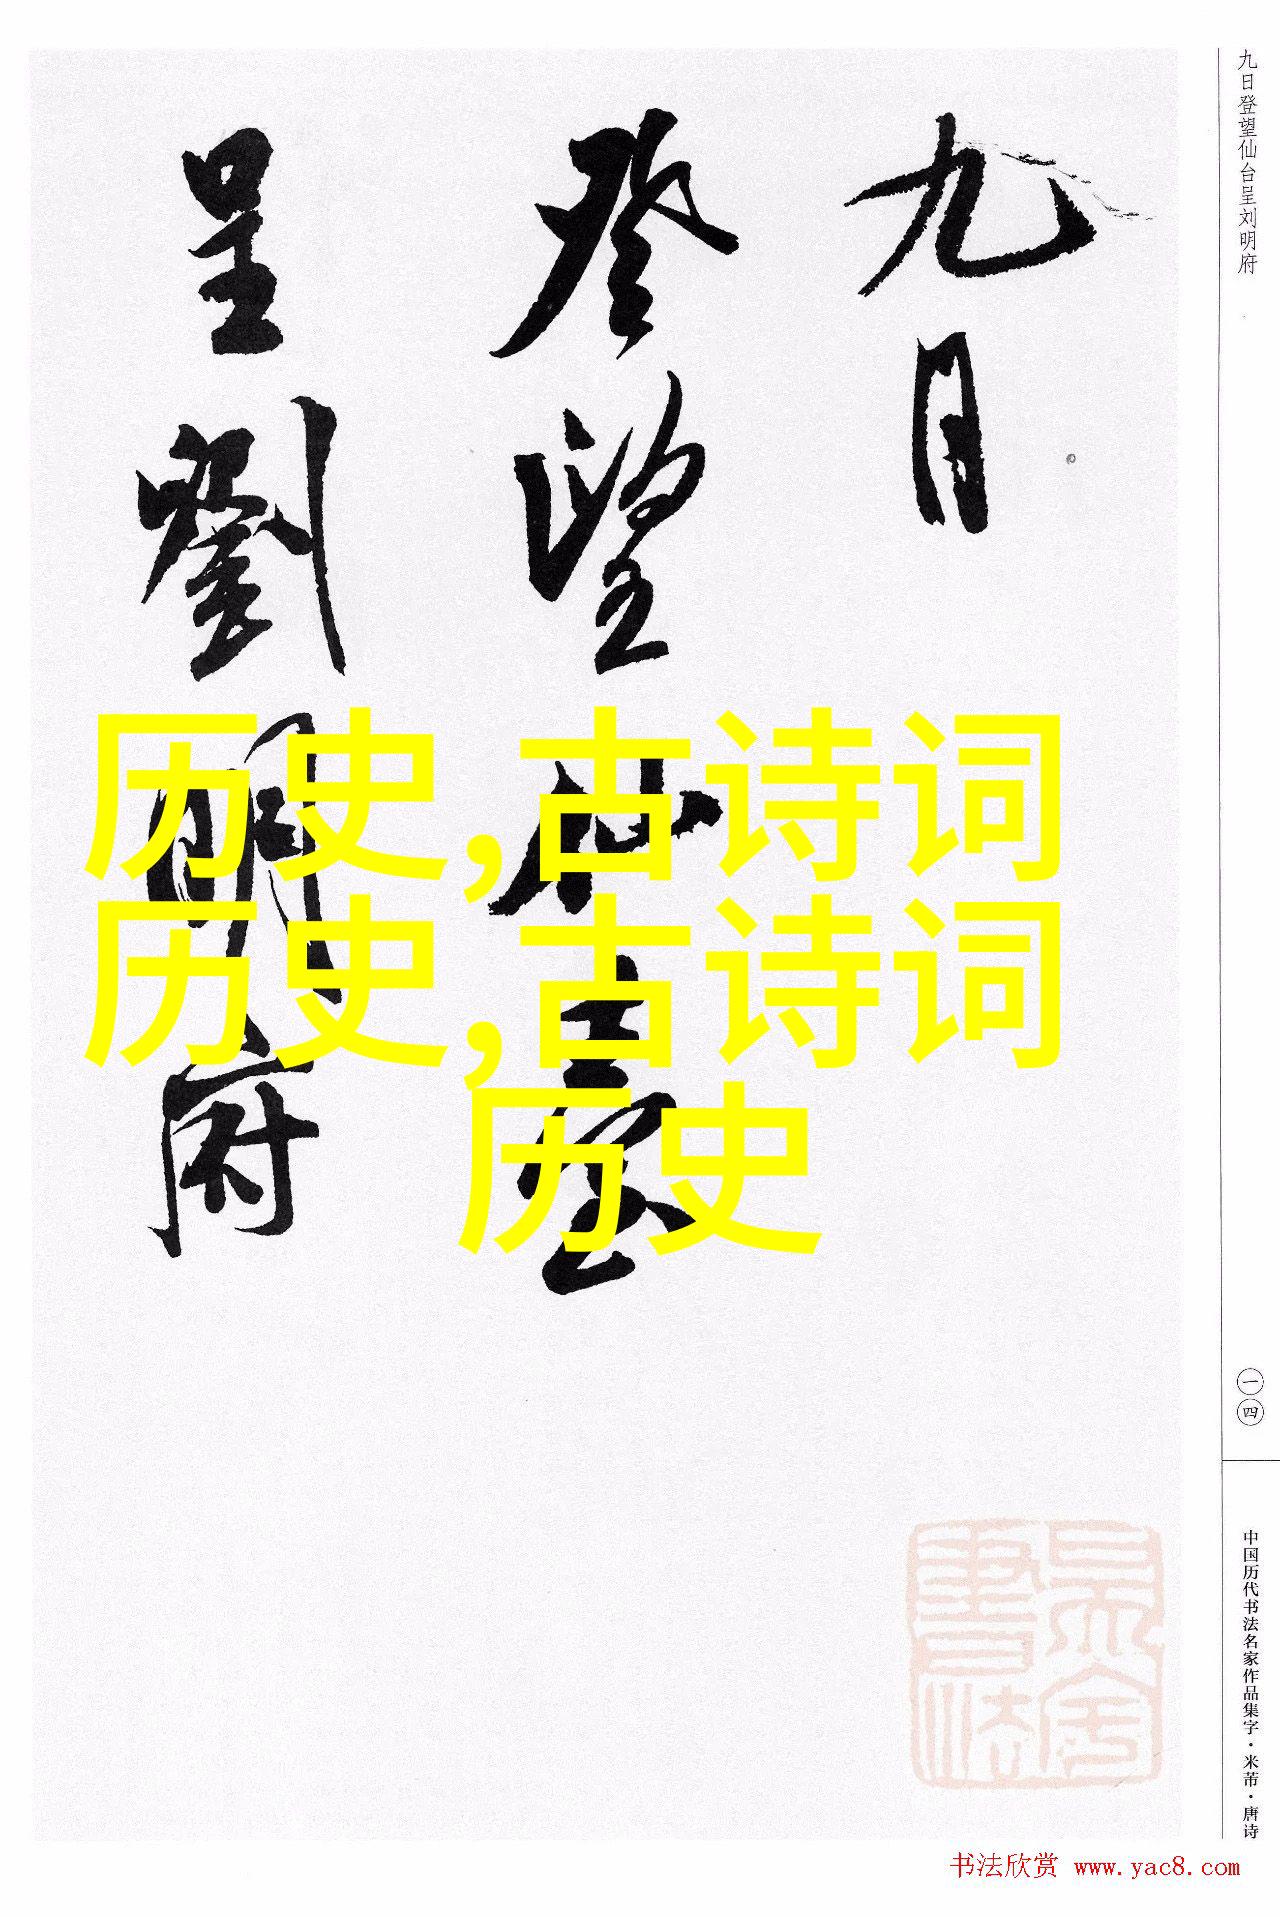 九日
登望仙臺
呈劉明府
历史,古诗词
历史,古诗词
历史
九日登望仙台呈刘明府
一四
中国历代书法名家作品集字·米芾·唐诗
书法欣赏 www.yac8.com